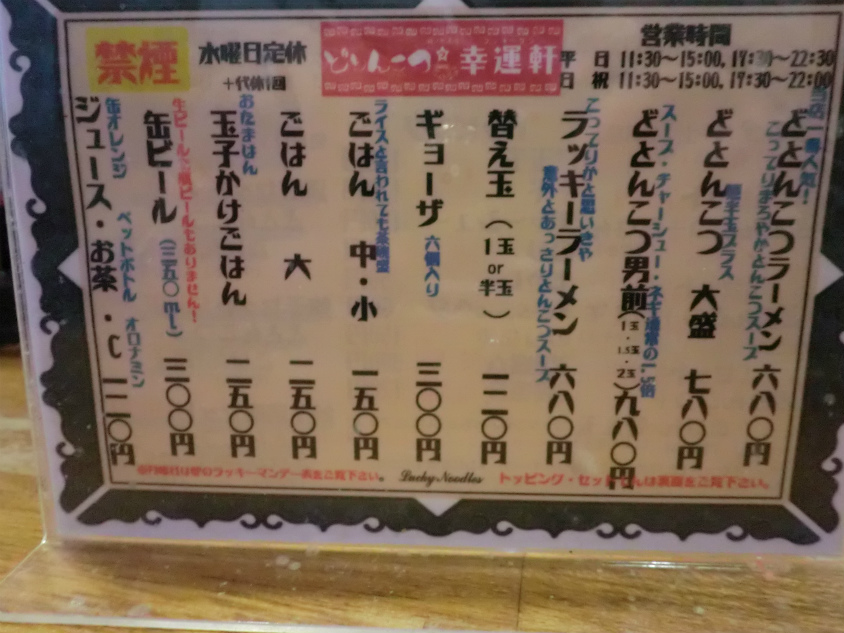 禁煙
水曜日定休
+代休1回
どりんこの☆幸運軒
営業時間
平日 11:30～15:00, 17:30～22:30
日祝 11:30～15:00, 17:30～22:00
当店一番人気!
こってりまろやかとんこつスープ
どとんこつラーメン 六八〇円
麺半玉プラス
どとんこつ 大盛 七八〇円
スープ・チャーシュー・ネギ通常の1.5倍
どとんこつ男前(1玉・1.5玉・2玉) 九八〇円
こってりかと思いきや
意外とあっさりとんこつスープ
ラッキーラーメン 六八〇円
替え玉(1玉or半玉) 一二〇円
ギョーザ 六個入り 三〇〇円
ライスと言われても茶碗盛
ごはん 中・小 一五〇円
ごはん 大 二五〇円
おたまはん
玉子かけごはん 二五〇円
生ビール・瓶ビールもありません!
缶ビール(三五〇ml) 三〇〇円
缶オレンジ ペットボトル オロナミン
ジュース・お茶・C 一二〇円
トッピング・セットくんは裏面をご覧下さい。
Lucky Noodles
ラッキーマンデー表をご覧下さい。